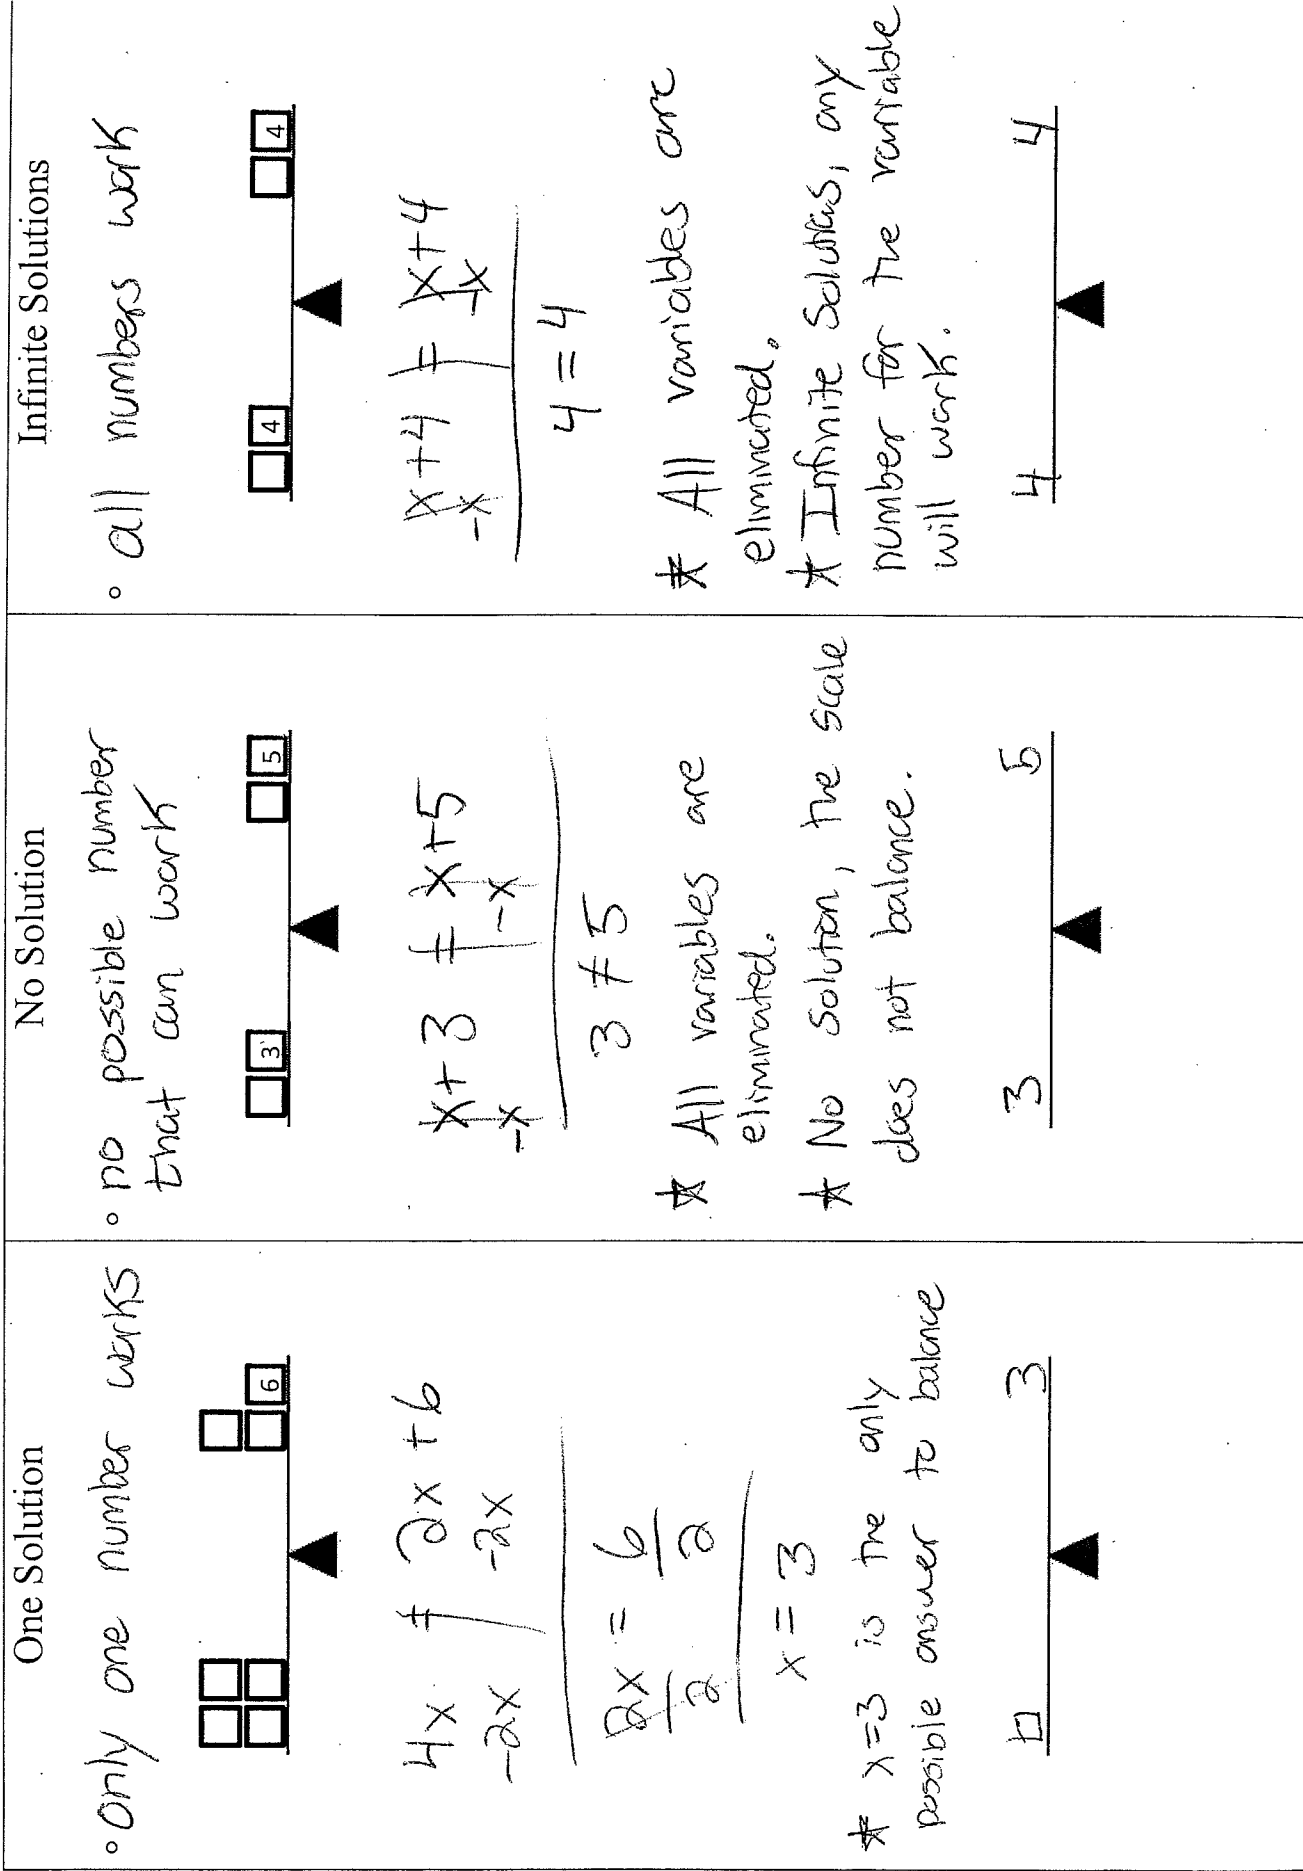 One Solution
• only one number works
6
4x = 2x + 6
-2x -2x
2x = 6
2 2
x = 3
* x=3 is the only
possible answer to balance
□ 3
No Solution
• no possible number
that can work
3 5
x+3 = x+5
-x -x
3 ≠ 5
* All variables are
eliminated.
* No Solution, the scale
does not balance.
3 5
Infinite Solutions
• all numbers work
4 4
x+4 = x+4
-x -x
4 = 4
* All variables are
eliminated.
* Infinite Solutions, any
number for the variable
will work.
4 4